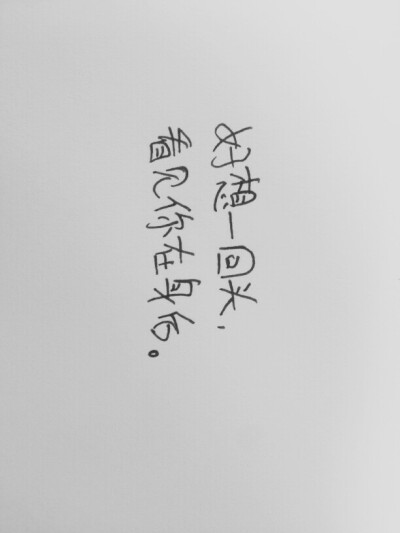 好想一回头,
看见你在身后。